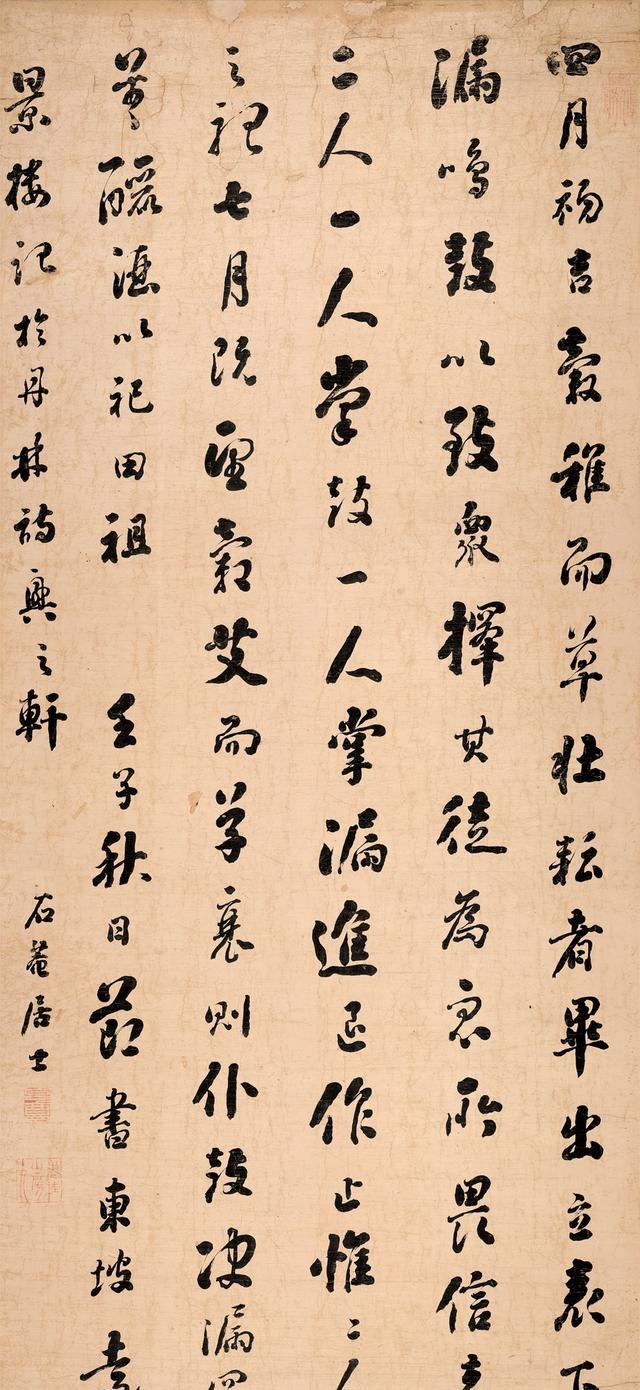 四月初吉穀稚而草壯耘者畢出立表下
漏鳴鼓以致衆擇其徒為衆所畏信者
二人一人掌鼓一人掌漏進退作止惟二人
之聽七月既望穀艾而草衰則仆鼓決漏
以祀田祖 壬子秋日節書東坡遠
景樓記於丹林詩興之軒 石菴居士